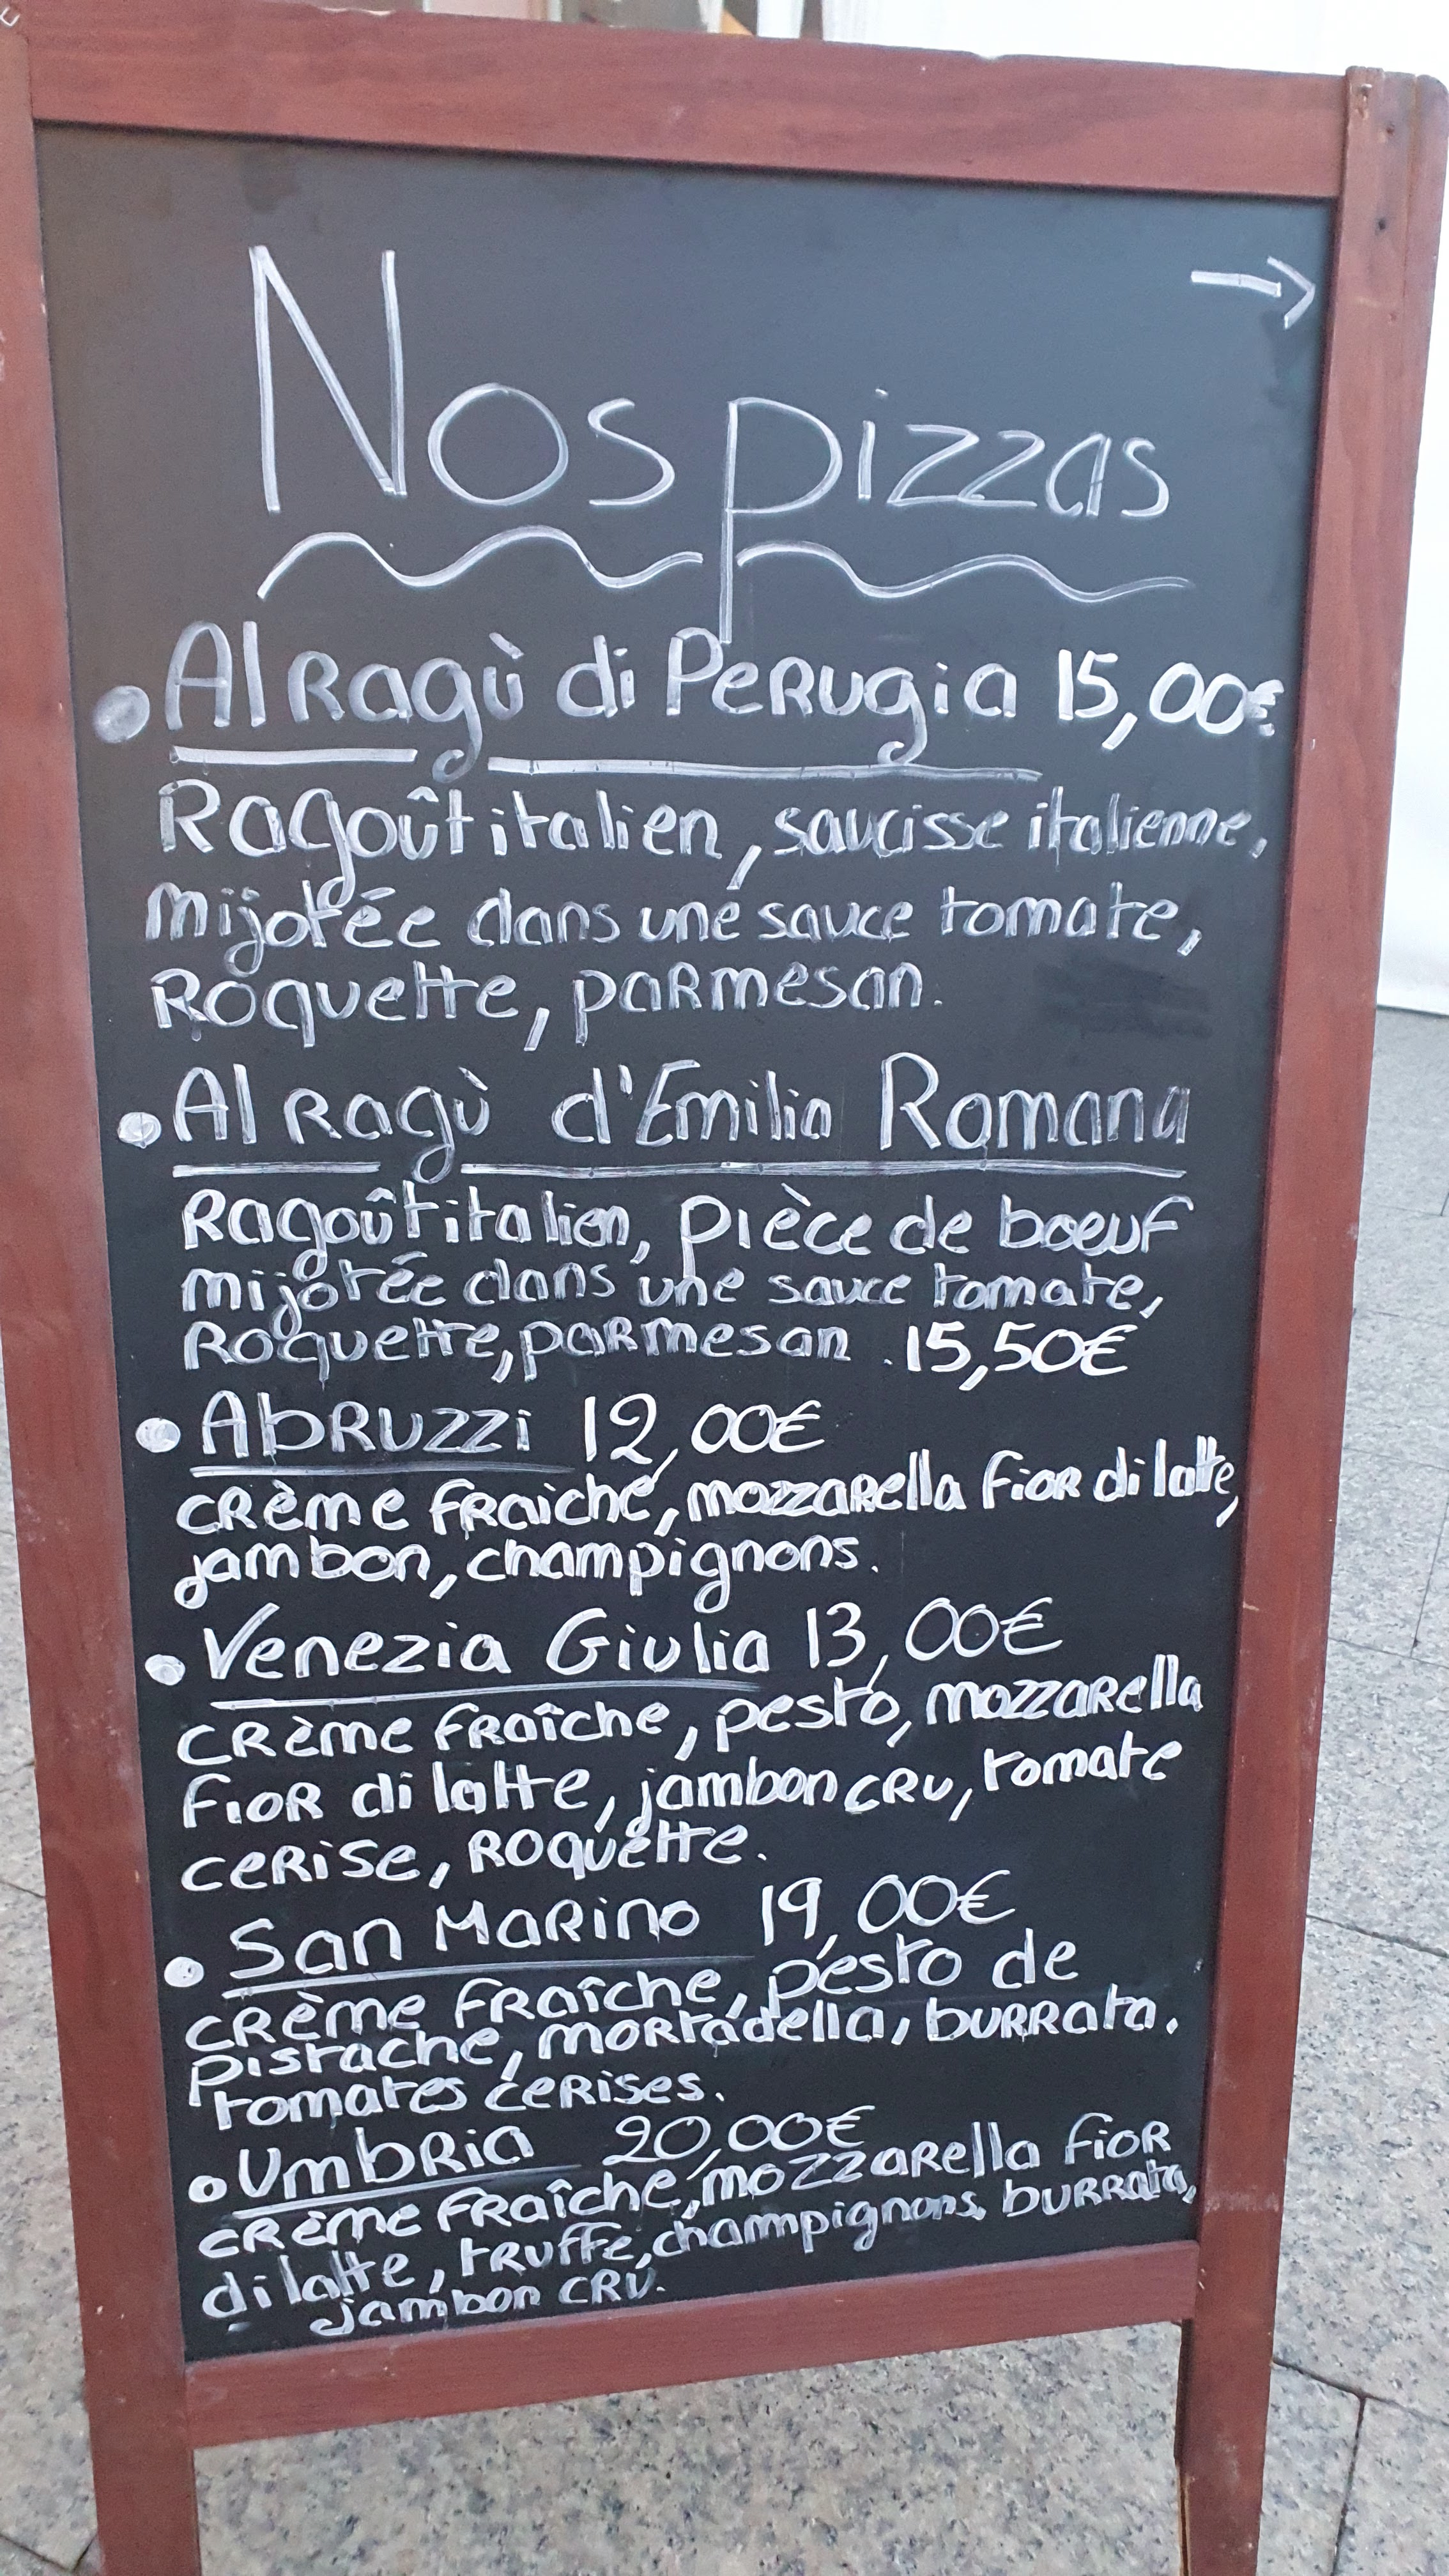 →
Nos pizzas
• Al Ragù di Perugia 15,00€
Ragoût italien, saucisse italienne,
mijotée dans une sauce tomate,
Roquette, parmesan.
• Al ragù d'Emilia Romana
Ragoût italien, pièce de boeuf
mijotée dans une sauce tomate,
Roquette, parmesan. 15,50€
• Abruzzi 12,00€
crème fraiche, mozzarella fior di latte,
jambon, champignons.
• Venezia Giulia 13,00€
crème fraîche, pesto, mozzarella
fior di latte, jambon cru, tomate
cerise, roquette.
• San Marino 19,00€
crème fraîche, pesto de
pistache, mortadella, burrata.
tomates cerises.
• Umbria 20,00€
crème fraîche, mozzarella fior
di latte, truffe, champignons, burrata,
jambon cru.